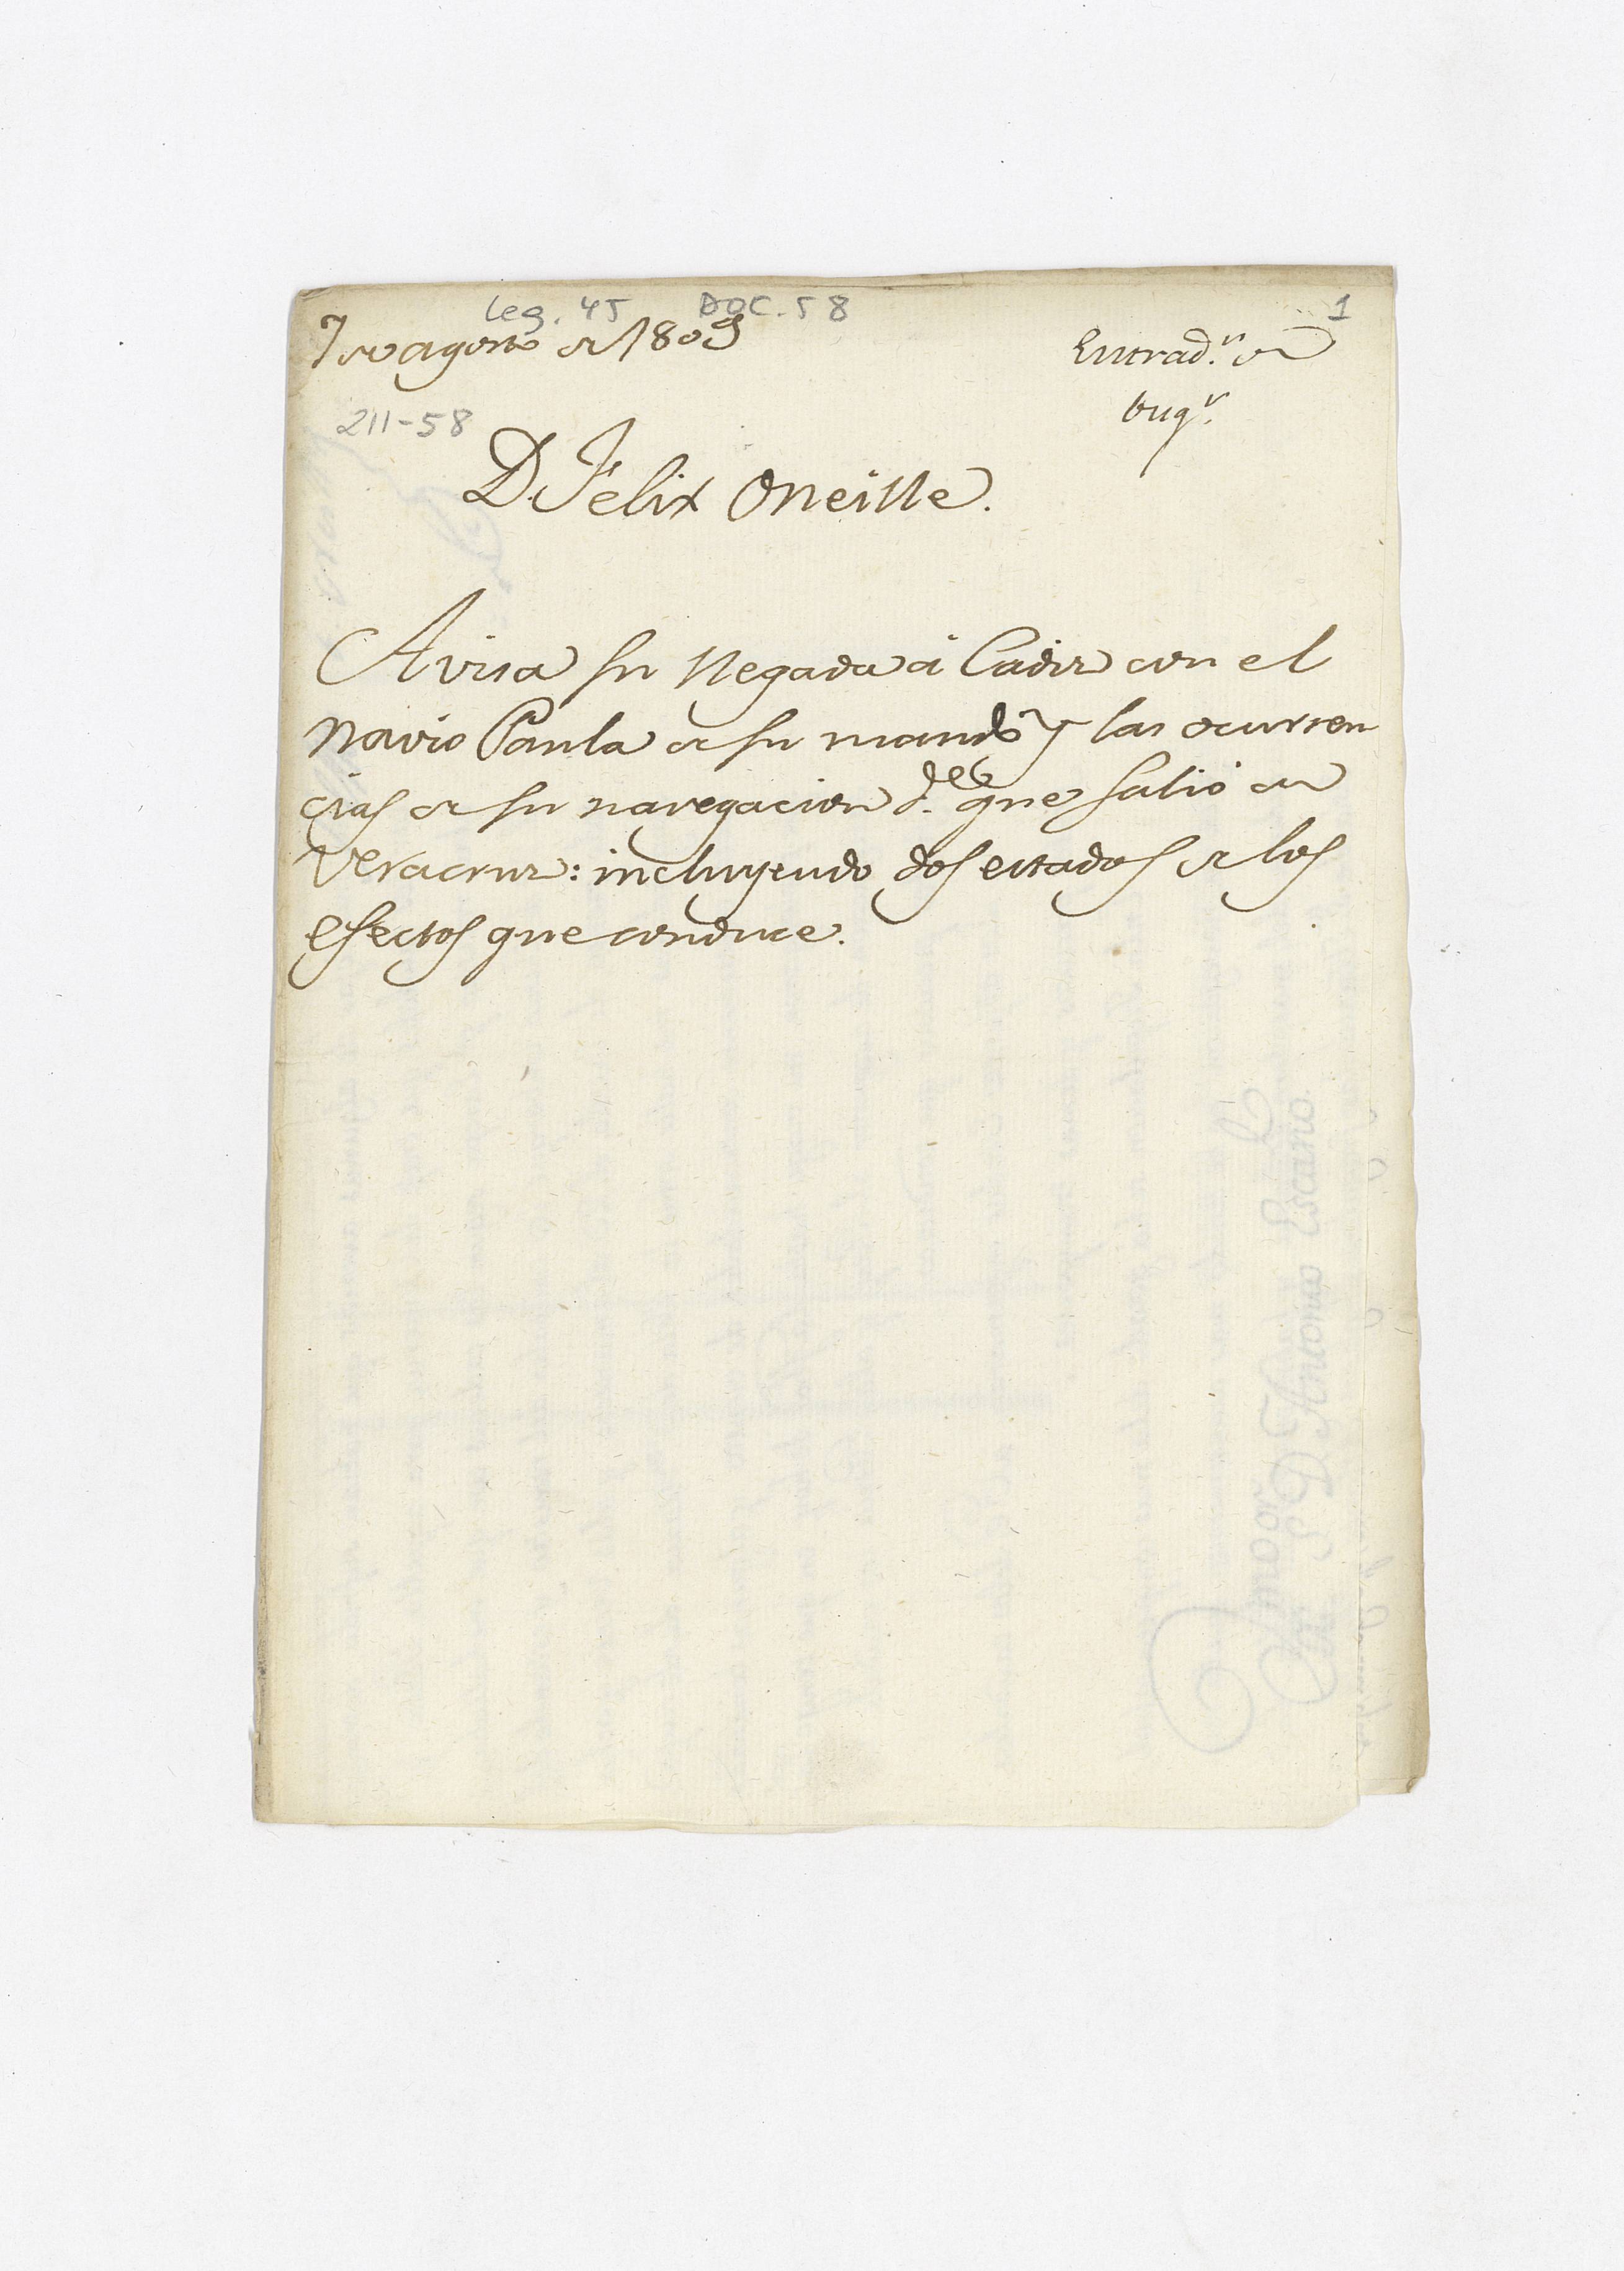 Leg. 45 DOC. 58 1
7 de agosto de 1809
Entrad.s de
buq.s
211-58
D. Felix Oneille.
Avisa su llegada á Cadiz con el
Navio Paula de su mando y las ocurren
cias de su navegacion d.^de que salió de
Veracruz: incluyendo dos estados de los
efectos que conduce.